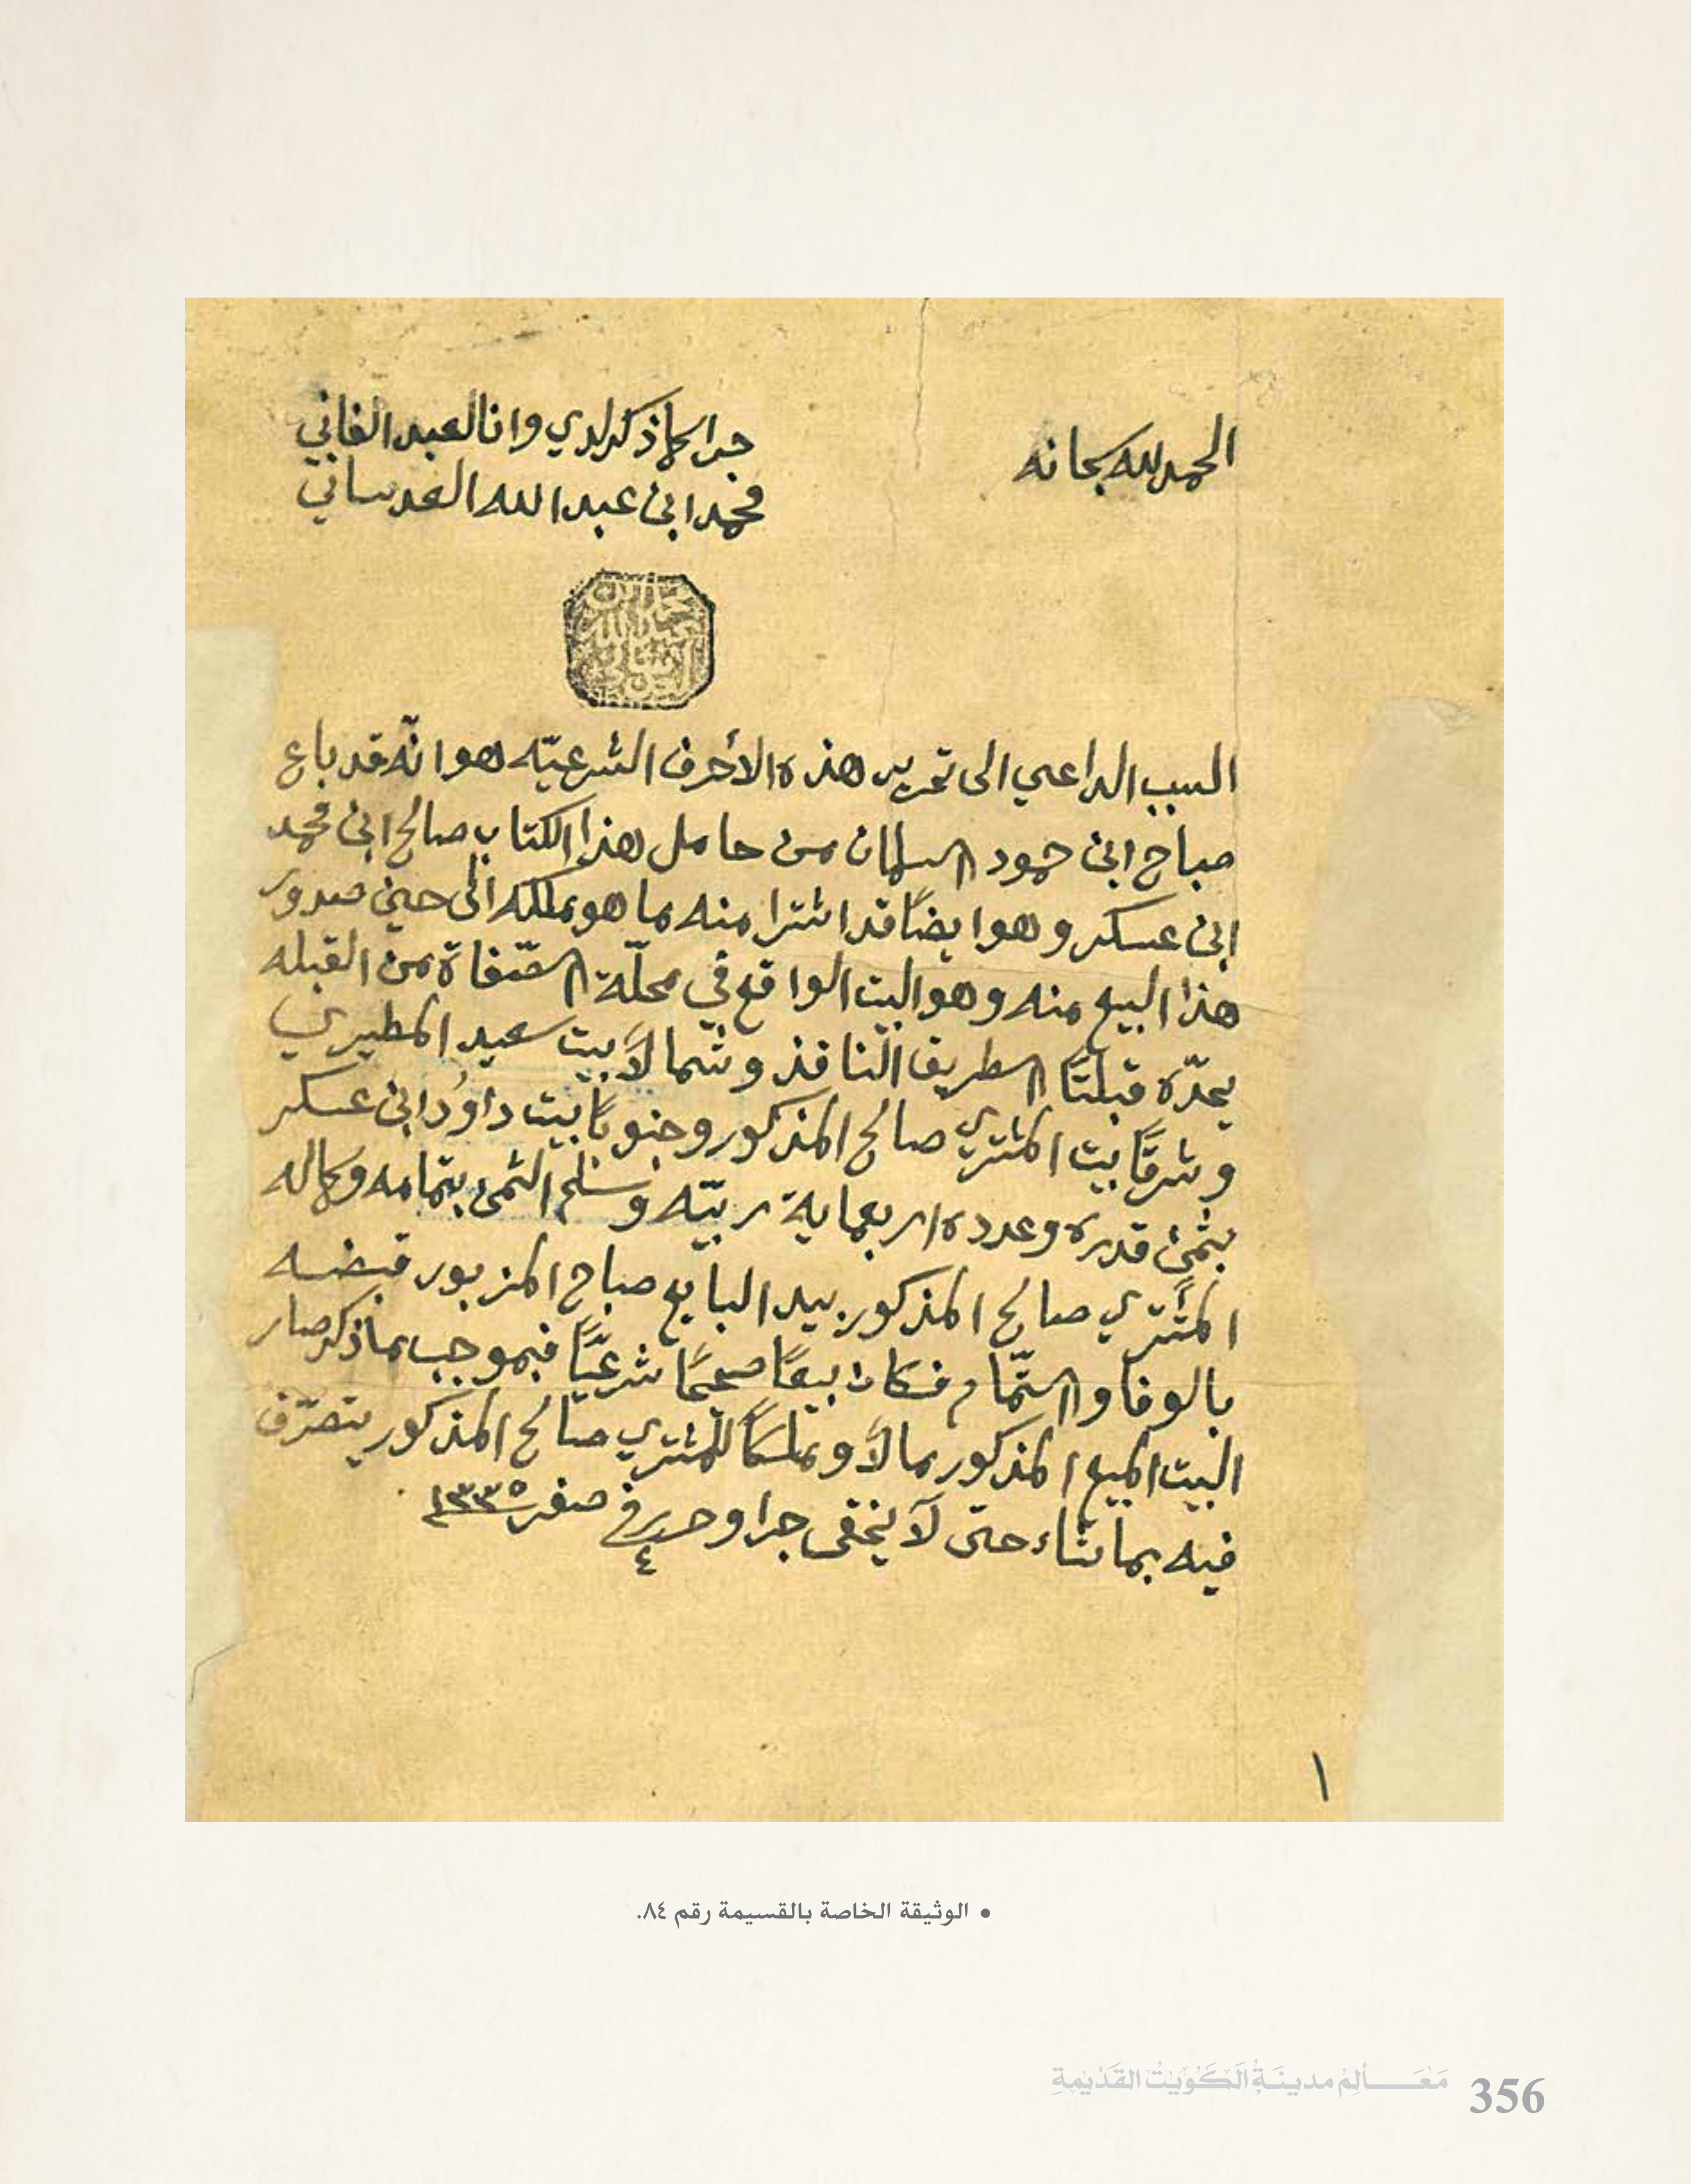 الحمد لله سبحانه
جرا كما ذكر لدي وانا العبد الفاني
محمد ابن عبدالله العدساني
محمد ابن
عبدالله
العدساني
السبب الداعي الى تحرير هذه الأحرف الشرعيّه هو انّه قد باع
صباح ابن حمود السلمان من حامل هذا الكتاب صالح ابن محمد
ابن عسكر وهو ايضًا قد اشترا منه ما هو ملكه الى حين صدور
هذا البيع منه وهو البيت الواقع في محلّة الصنقاة من القبله
يحدّه قبلتًا الطريق النافذ وشمالاً بيت سعيد المطيري
وشرقًا بيت المشتري صالح المذكور وجنوبًا بيت داوُد ابن عسكر
بثمن قدره وعدده اربعماية ربيّه وسلم الثمن بتمامه وكماله
المشتري صالح المذكور بيد البايع صباح المزبور قبضه
بالوفا والتمّام فكان بيعًا صحيحًا شرعيًّا فبموجب ماذكر صار
البيت المبيع المذكور مالاً وملكًا للمشتري صالح المذكور يتصرّف
فيه بما شاء حتى لا يخفى جرا وحرر في ٤ صفر ١٣٣٥
١
• الوثيقة الخاصة بالقسيمة رقم ٨٤.
مَعَـــالِمُ مدينَةِ الكُوَيْت القَدْيمةِ 356